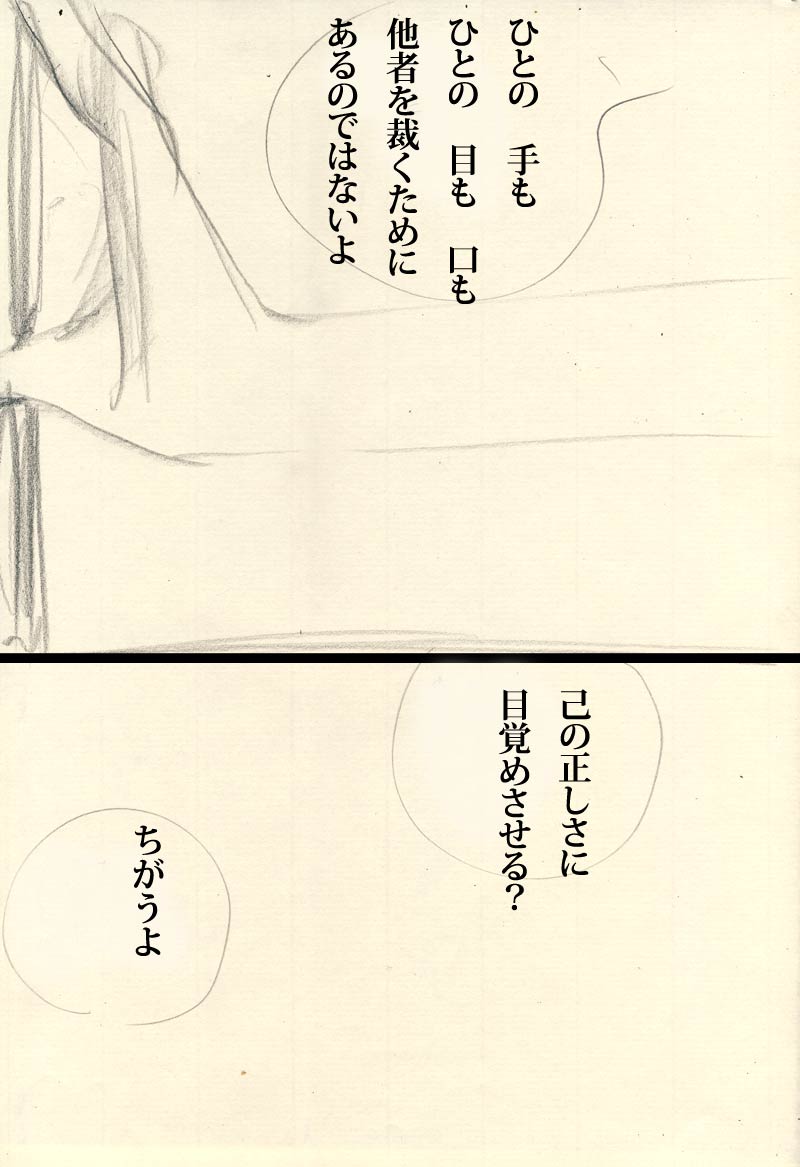 ひとの　手も
ひとの　目も　口も
他者を裁くために
あるのではないよ
己の正しさに
目覚めさせる？
ちがうよ